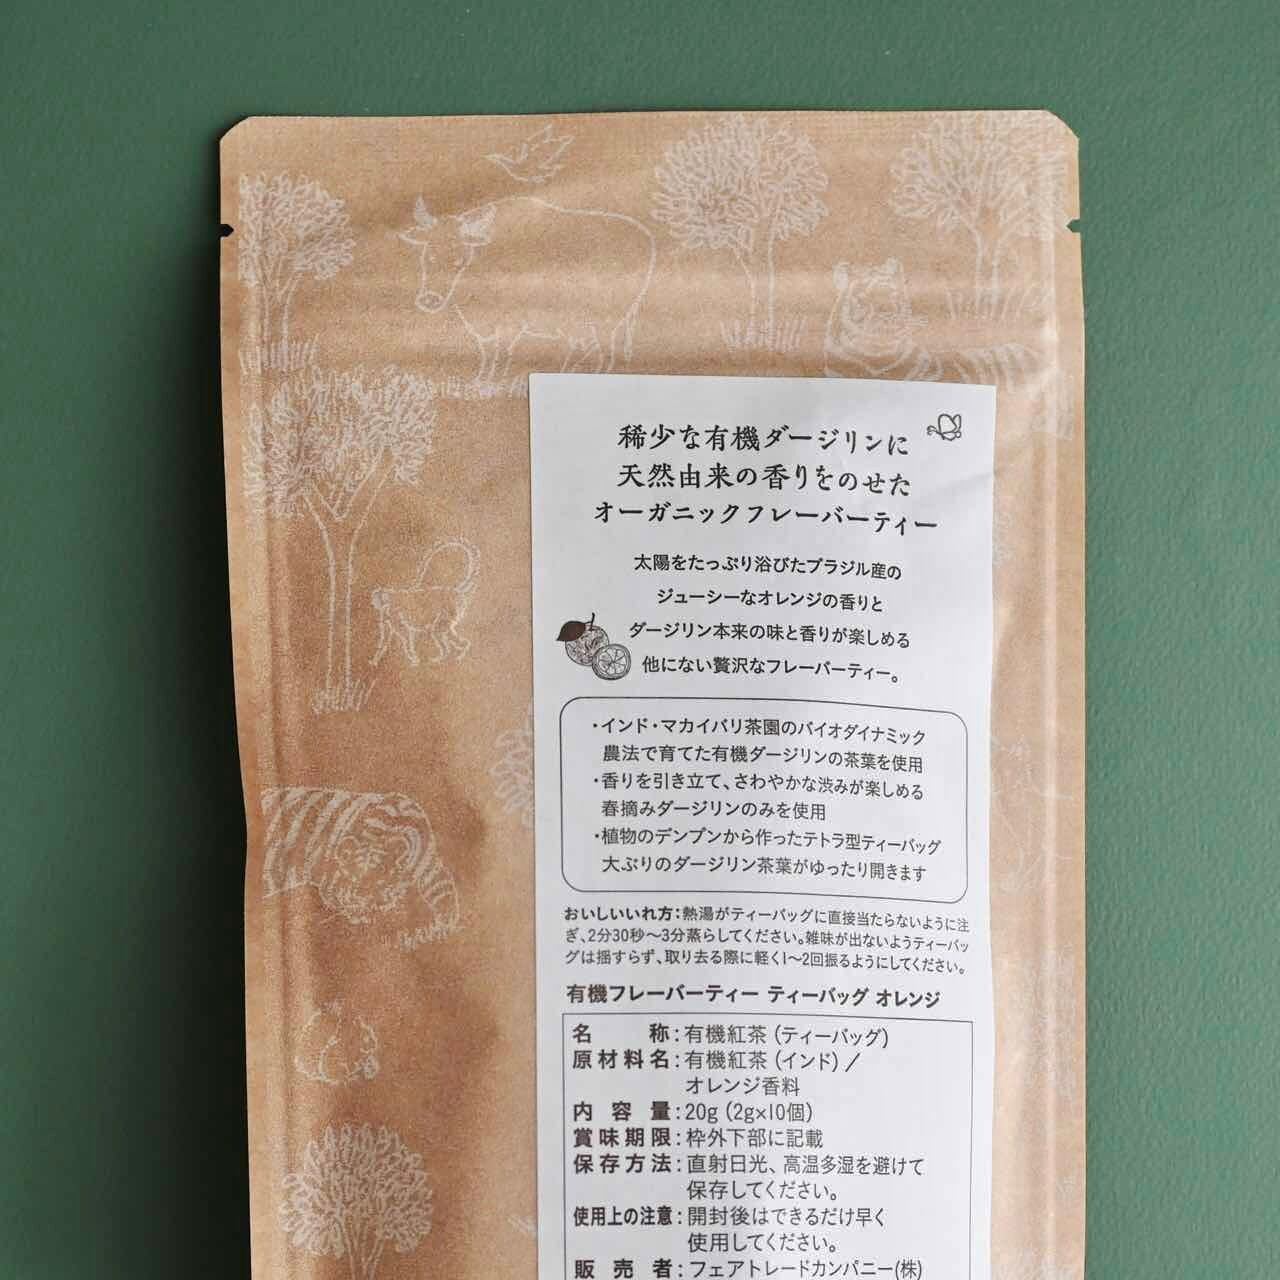 稀少な有機ダージリンに
天然由来の香りをのせた
オーガニックフレーバーティー
太陽をたっぷり浴びたブラジル産の
ジューシーなオレンジの香りと
ダージリン本来の味と香りが楽しめる
他にない贅沢なフレーバーティー。
・インド・マカイバリ茶園のバイオダイナミック
農法で育てた有機ダージリンの茶葉を使用
・香りを引き立て、さわやかな渋みが楽しめる
春摘みダージリンのみを使用
・植物のデンプンから作ったテトラ型ティーバッグ
大ぶりのダージリン茶葉がゆったり開きます
おいしいいれ方：熱湯がティーバッグに直接当たらないように注
ぎ、2分30秒～3分蒸らしてください。雑味が出ないようティーバッ
グは揺すらず、取り去る際に軽く1～2回振るようにしてください。
有機フレーバーティー ティーバッグ オレンジ
名称：有機紅茶（ティーバッグ）
原材料名：有機紅茶（インド）／
オレンジ香料
内容量：20g（2g×10個）
賞味期限：枠外下部に記載
保存方法：直射日光、高温多湿を避けて
保存してください。
使用上の注意：開封後はできるだけ早く
使用してください。
販売者：フェアトレードカンパニー(株)